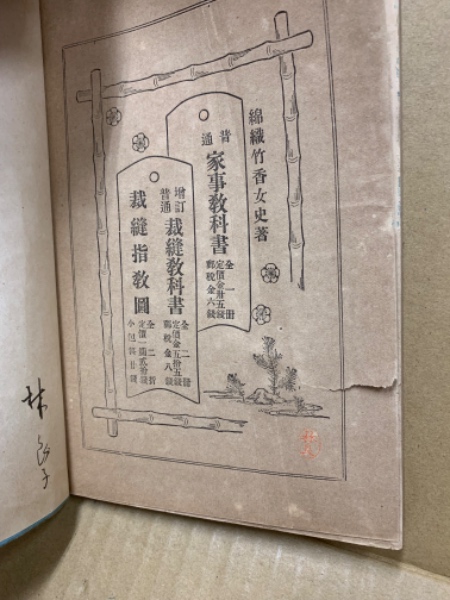 綿織竹香女史著
普通
家事教科書
全一册
定價金卅五錢
郵税金六錢
增訂
普通
裁縫教科書
全二册
定價金五拾五錢
郵税金八錢
裁縫指教圖
全二折
定價一圓貳拾錢
小包料廿錢
林
子